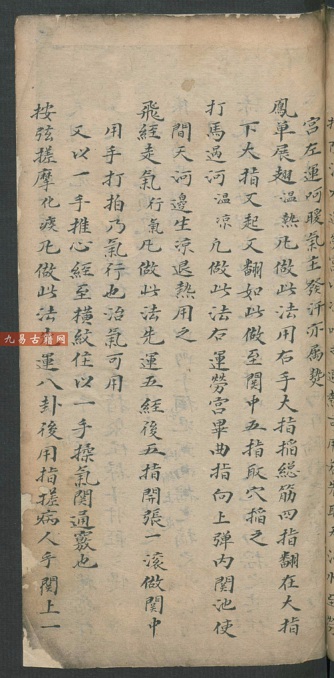 宮左運呵暖氣主發汗亦屬熱
鳳單展翅温熱凡做此法用右手大指搯總筋四指翻在大指
下大指又起又翻如此做至関中五指取穴搯之
打馬過河温凉凡做此法右運勞宮畢曲指向上弹内関池使
間天河邊生凉退熱用之
飛經走氣行氣凡做此法先運五經後五指開張一滚做関中
用手打拍乃氣行也治氣可用
又以一手推心經至横紋住以一手操氣関通竅也
按弦搓摩化痰凡做此法運八卦後用指搓病人手関上一
九易古籍网